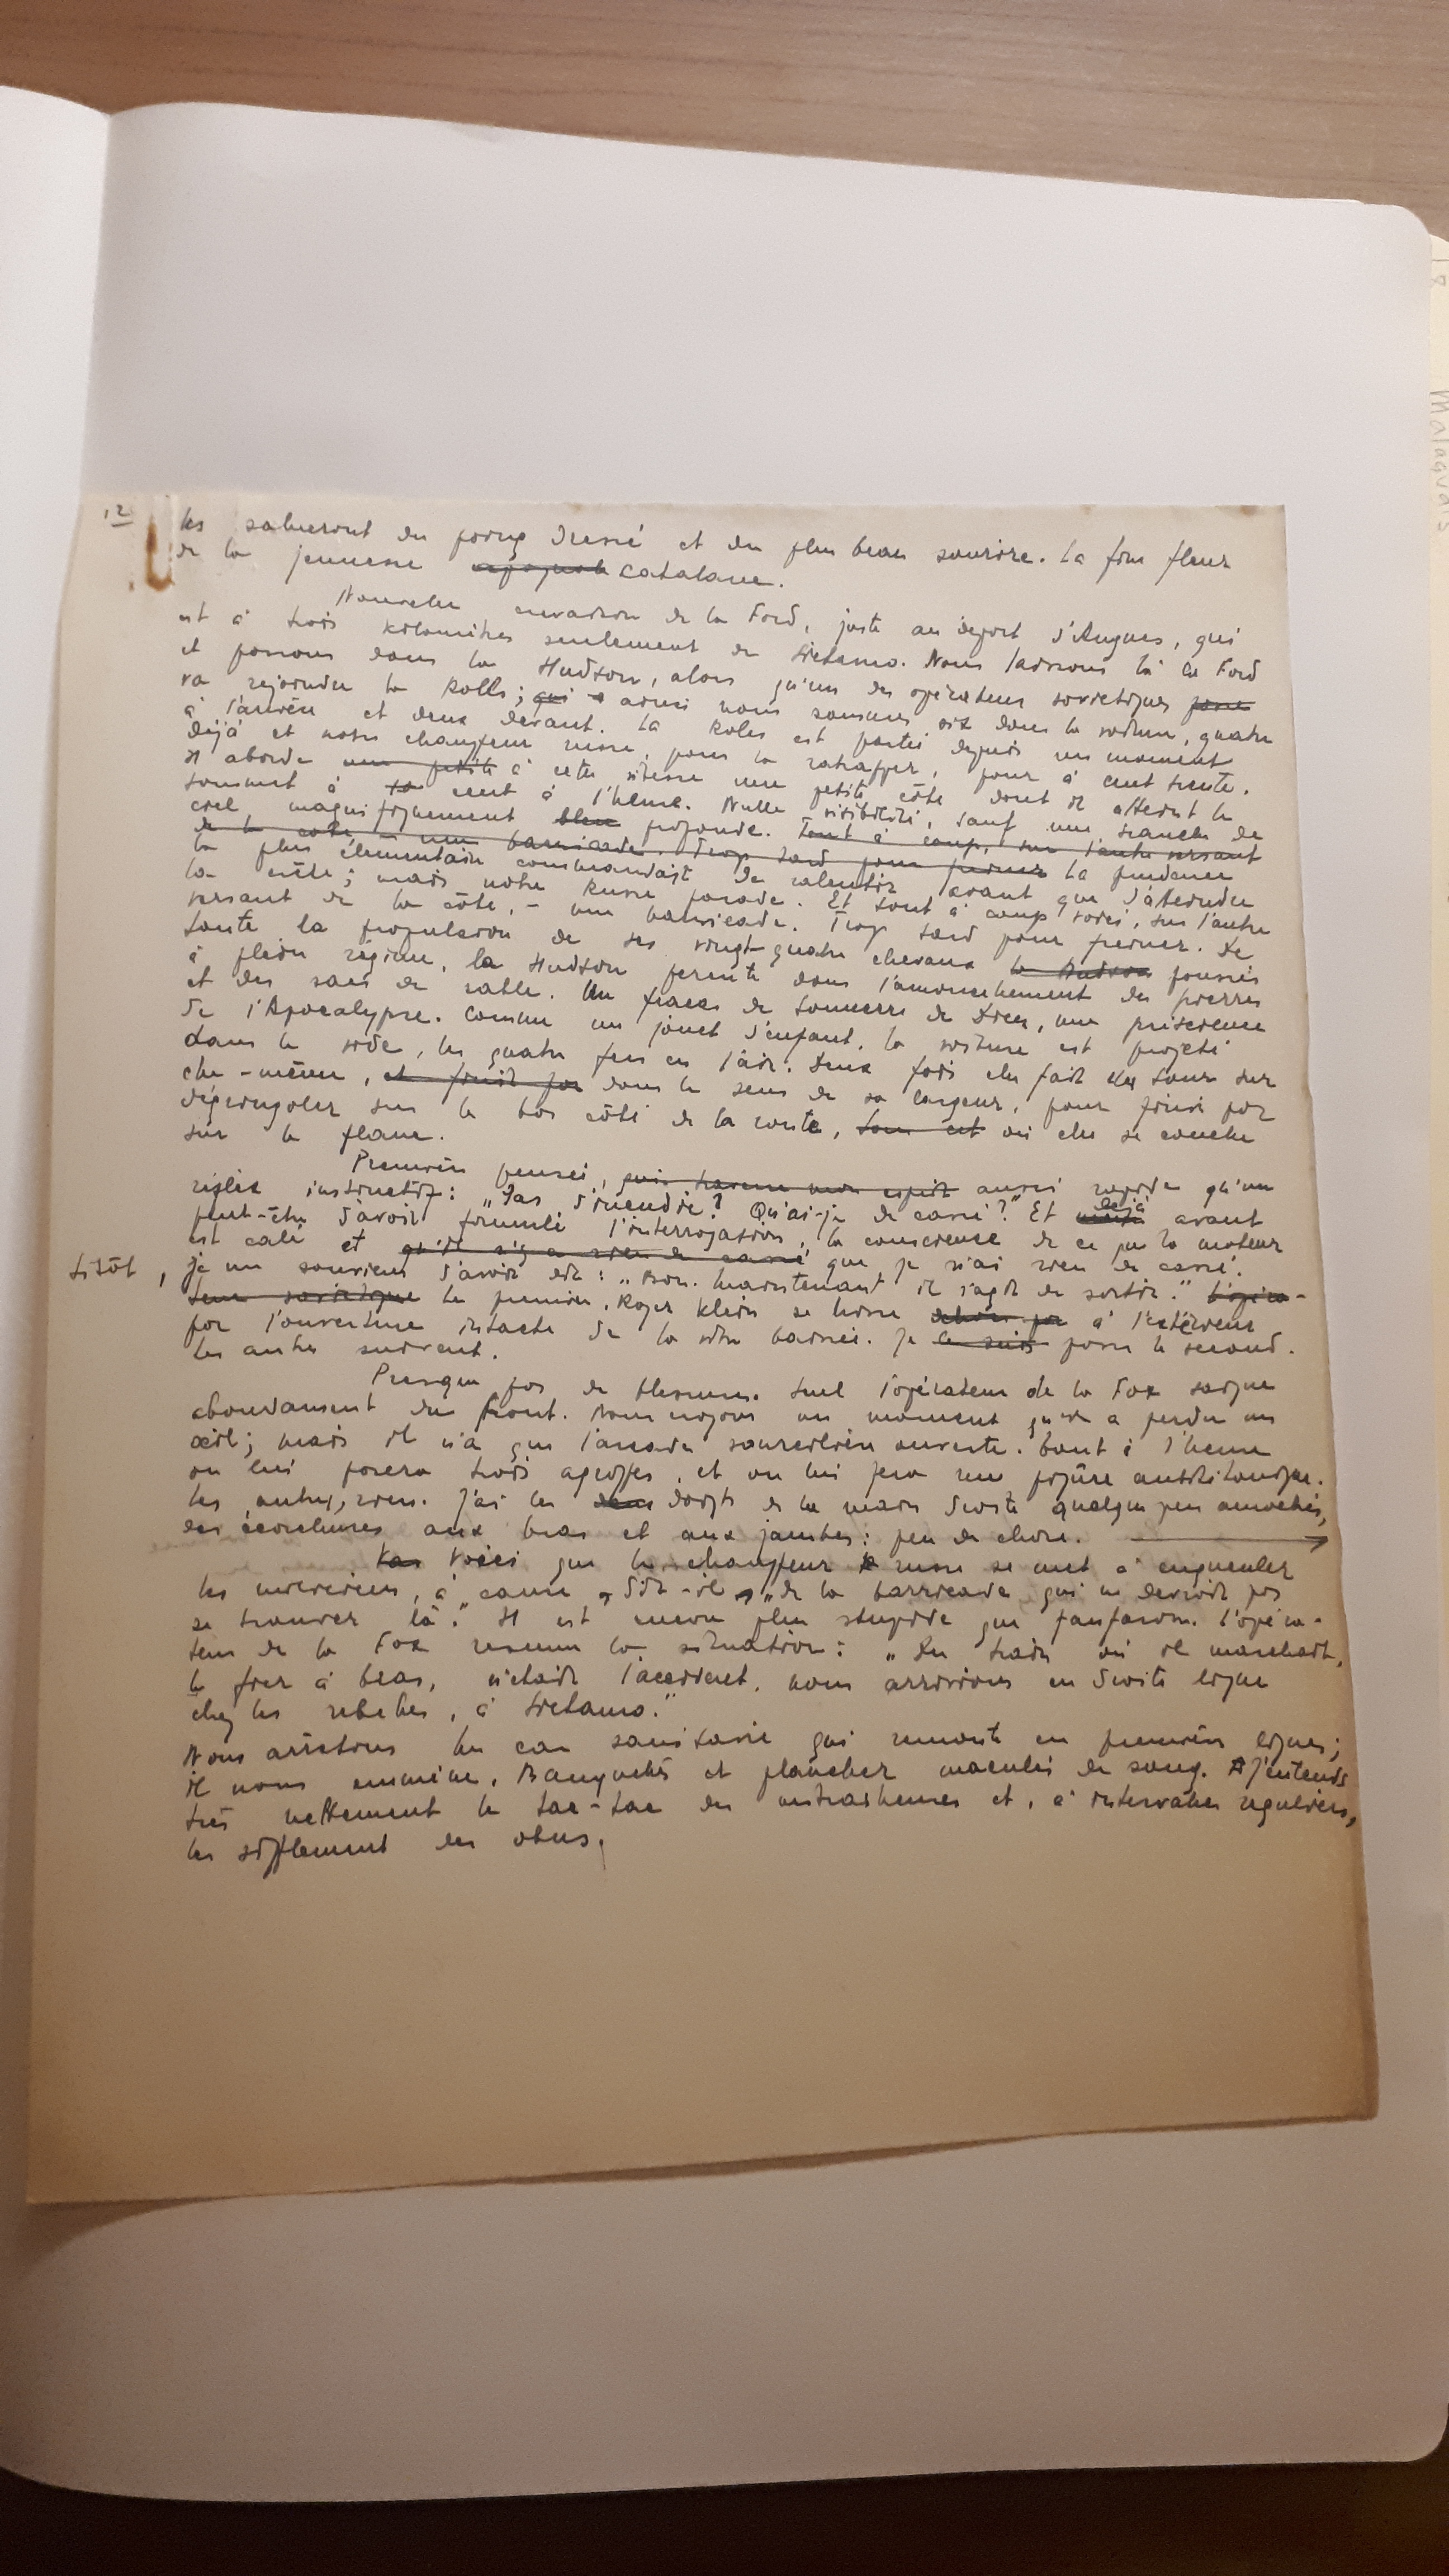 12
les salueront du poing dressé et du plus beau sourire. La fine fleur
de la jeunesse espagnole catalane.
Nouvelle de la Ford, juste au départ d'Angues, qui
est à trois kilomètres seulement de Siétamo. Nous laissons là la Ford
et passons dans la Hudson, alors qu'un des opérateurs soviétiques passe
va rejoindre la Rolls; qui ainsi nous sommes six dans la voiture, quatre
à l'arrière et deux devant. La Rolls est partie depuis un moment
déjà et notre chauffeur russe, pour la rattraper, pousse à cent trente.
Il aborde une petite à cette vitesse une petite côte dont il atteint le
sommet à cent à l'heure. Nulle visibilité, sauf une tranche de
ciel magnifiquement bleu profonde. Tout à coup, sur l'autre versant
de la côte, – une barricade. Trop tard pour freiner La prudence
la plus élémentaire commandait de ralentir avant que d'atteindre
la crête; mais notre Russe parade. Et tout à coup voici, sur l'autre
versant de la côte, – une barricade. Trop tard pour freiner. De
toute la propulsion de ses vingt-quatre chevaux la Hudson poussés
à plein régime, la Hudson percute dans l'amoncellement des pierres
et des sacs de sable. Un fracas de tonnerre de Dieu, une prescience
de l'Apocalypse. Comme un jouet d'enfant, la voiture est projetée
dans le vide, les quatre fers en l'air. Deux fois elle fait un tour sur
elle-même, et finit par dans le sens de sa largeur, pour finir par
dégringoler sur le bas côté de la route, où elle se couche
sur le flanc.
Première pensée, qui traverse mon esprit aussi rapide qu'un
réflexe instinctif: „Pas d'incendie? Qu'ai-je de cassé?" Et déjà avant
peut-être d'avoir formulé l'interrogation, la conscience de ce que le moteur
est calé et qu'il n'y a rien de cassé que je n'ai rien de cassé.
sitôt, je me souviens d'avoir dit: „Bon. Maintenant il s'agit de sortir." L'opéra-
teur soviétique Le premier, Roger Klein se hisse dehors par à l'extérieur
par l'ouverture intacte de la vitre baissée. Je le suis passe le second.
Les autres suivent.
Presque pas de blessures. Seul l'opérateur de la Fox saigne
abondamment du front. Nous croyons un moment qu'il a perdu un
œil; mais il n'a que l'arcade sourcilière ouverte. Tout à l'heure
on lui posera trois agrafes, et on lui fera une piqûre antitétanique.
Les autres, rien. J'ai les deux doigts de la main droite quelque peu amochés,
des écorchures aux bras et aux jambes: peu de chose.
Voici que le chauffeur russe se met à engueuler
les miliciens, à „cause, dit-il, „de la barricade qui ne devrait pas
se trouver là." Il est encore plus stupide que fanfaron. L'opéra-
teur de la Fox résume la situation: „Du train où il marchait,
le fier à bras, n'était l'accident, nous arrivions en droite ligne
chez les rebelles, à Siétamo."
Nous arrêtons un car sanitaire qui remonte en première ligne;
il nous emmène. Banquettes et plancher maculés de sang. J'entends
très nettement le tac-tac des mitrailleuses et, à intervalles réguliers,
les sifflement des obus.
Malaquais